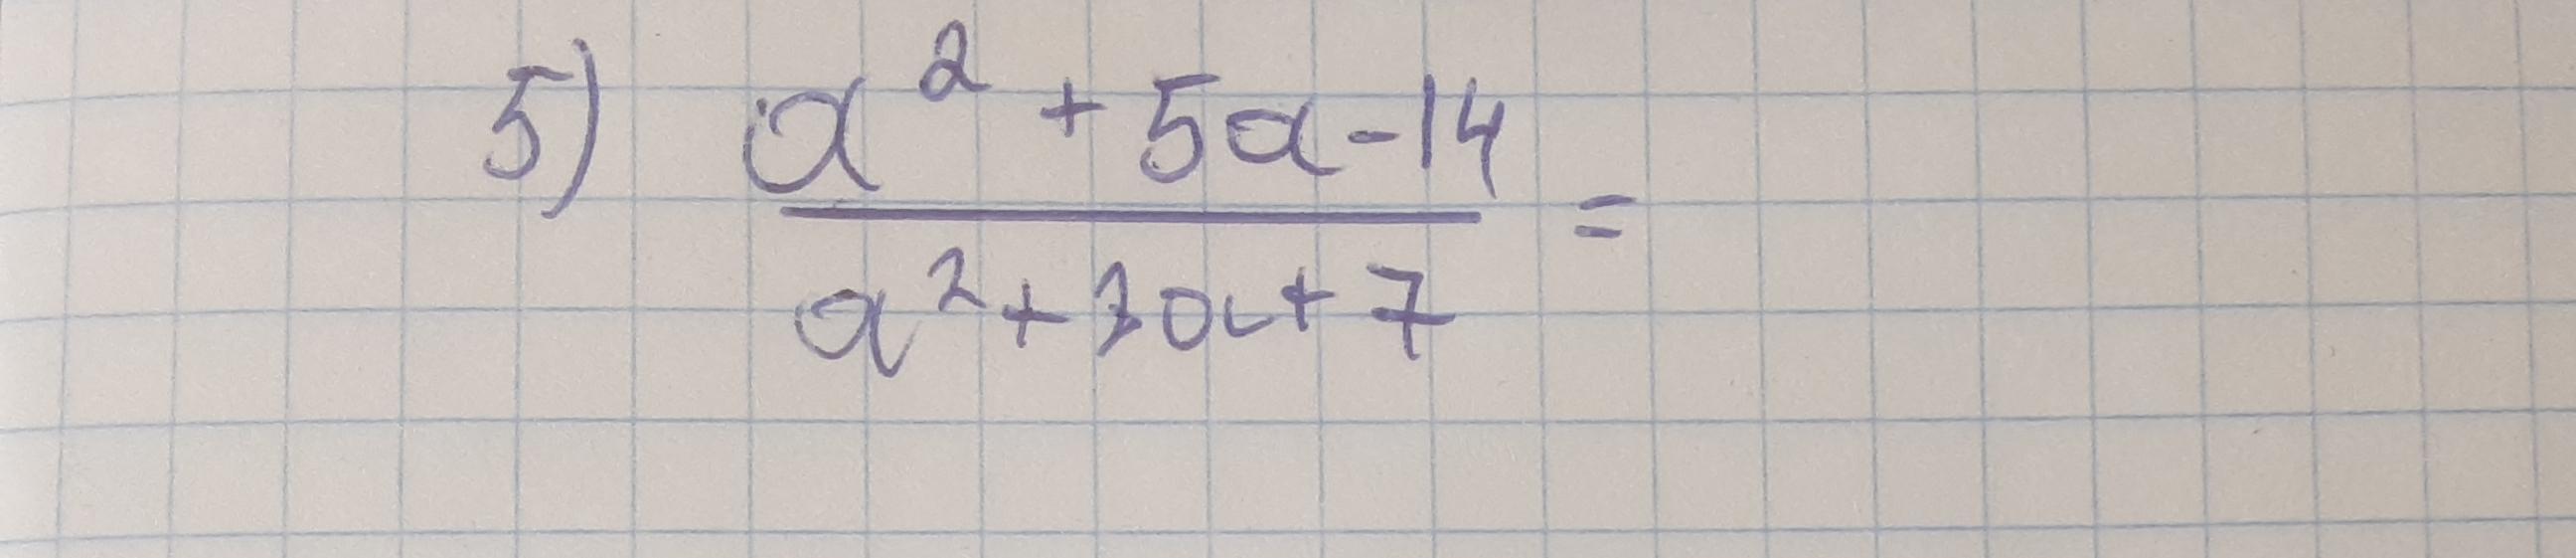 5) a² + 5a - 14
―――――――― =
a² + 3a + 7